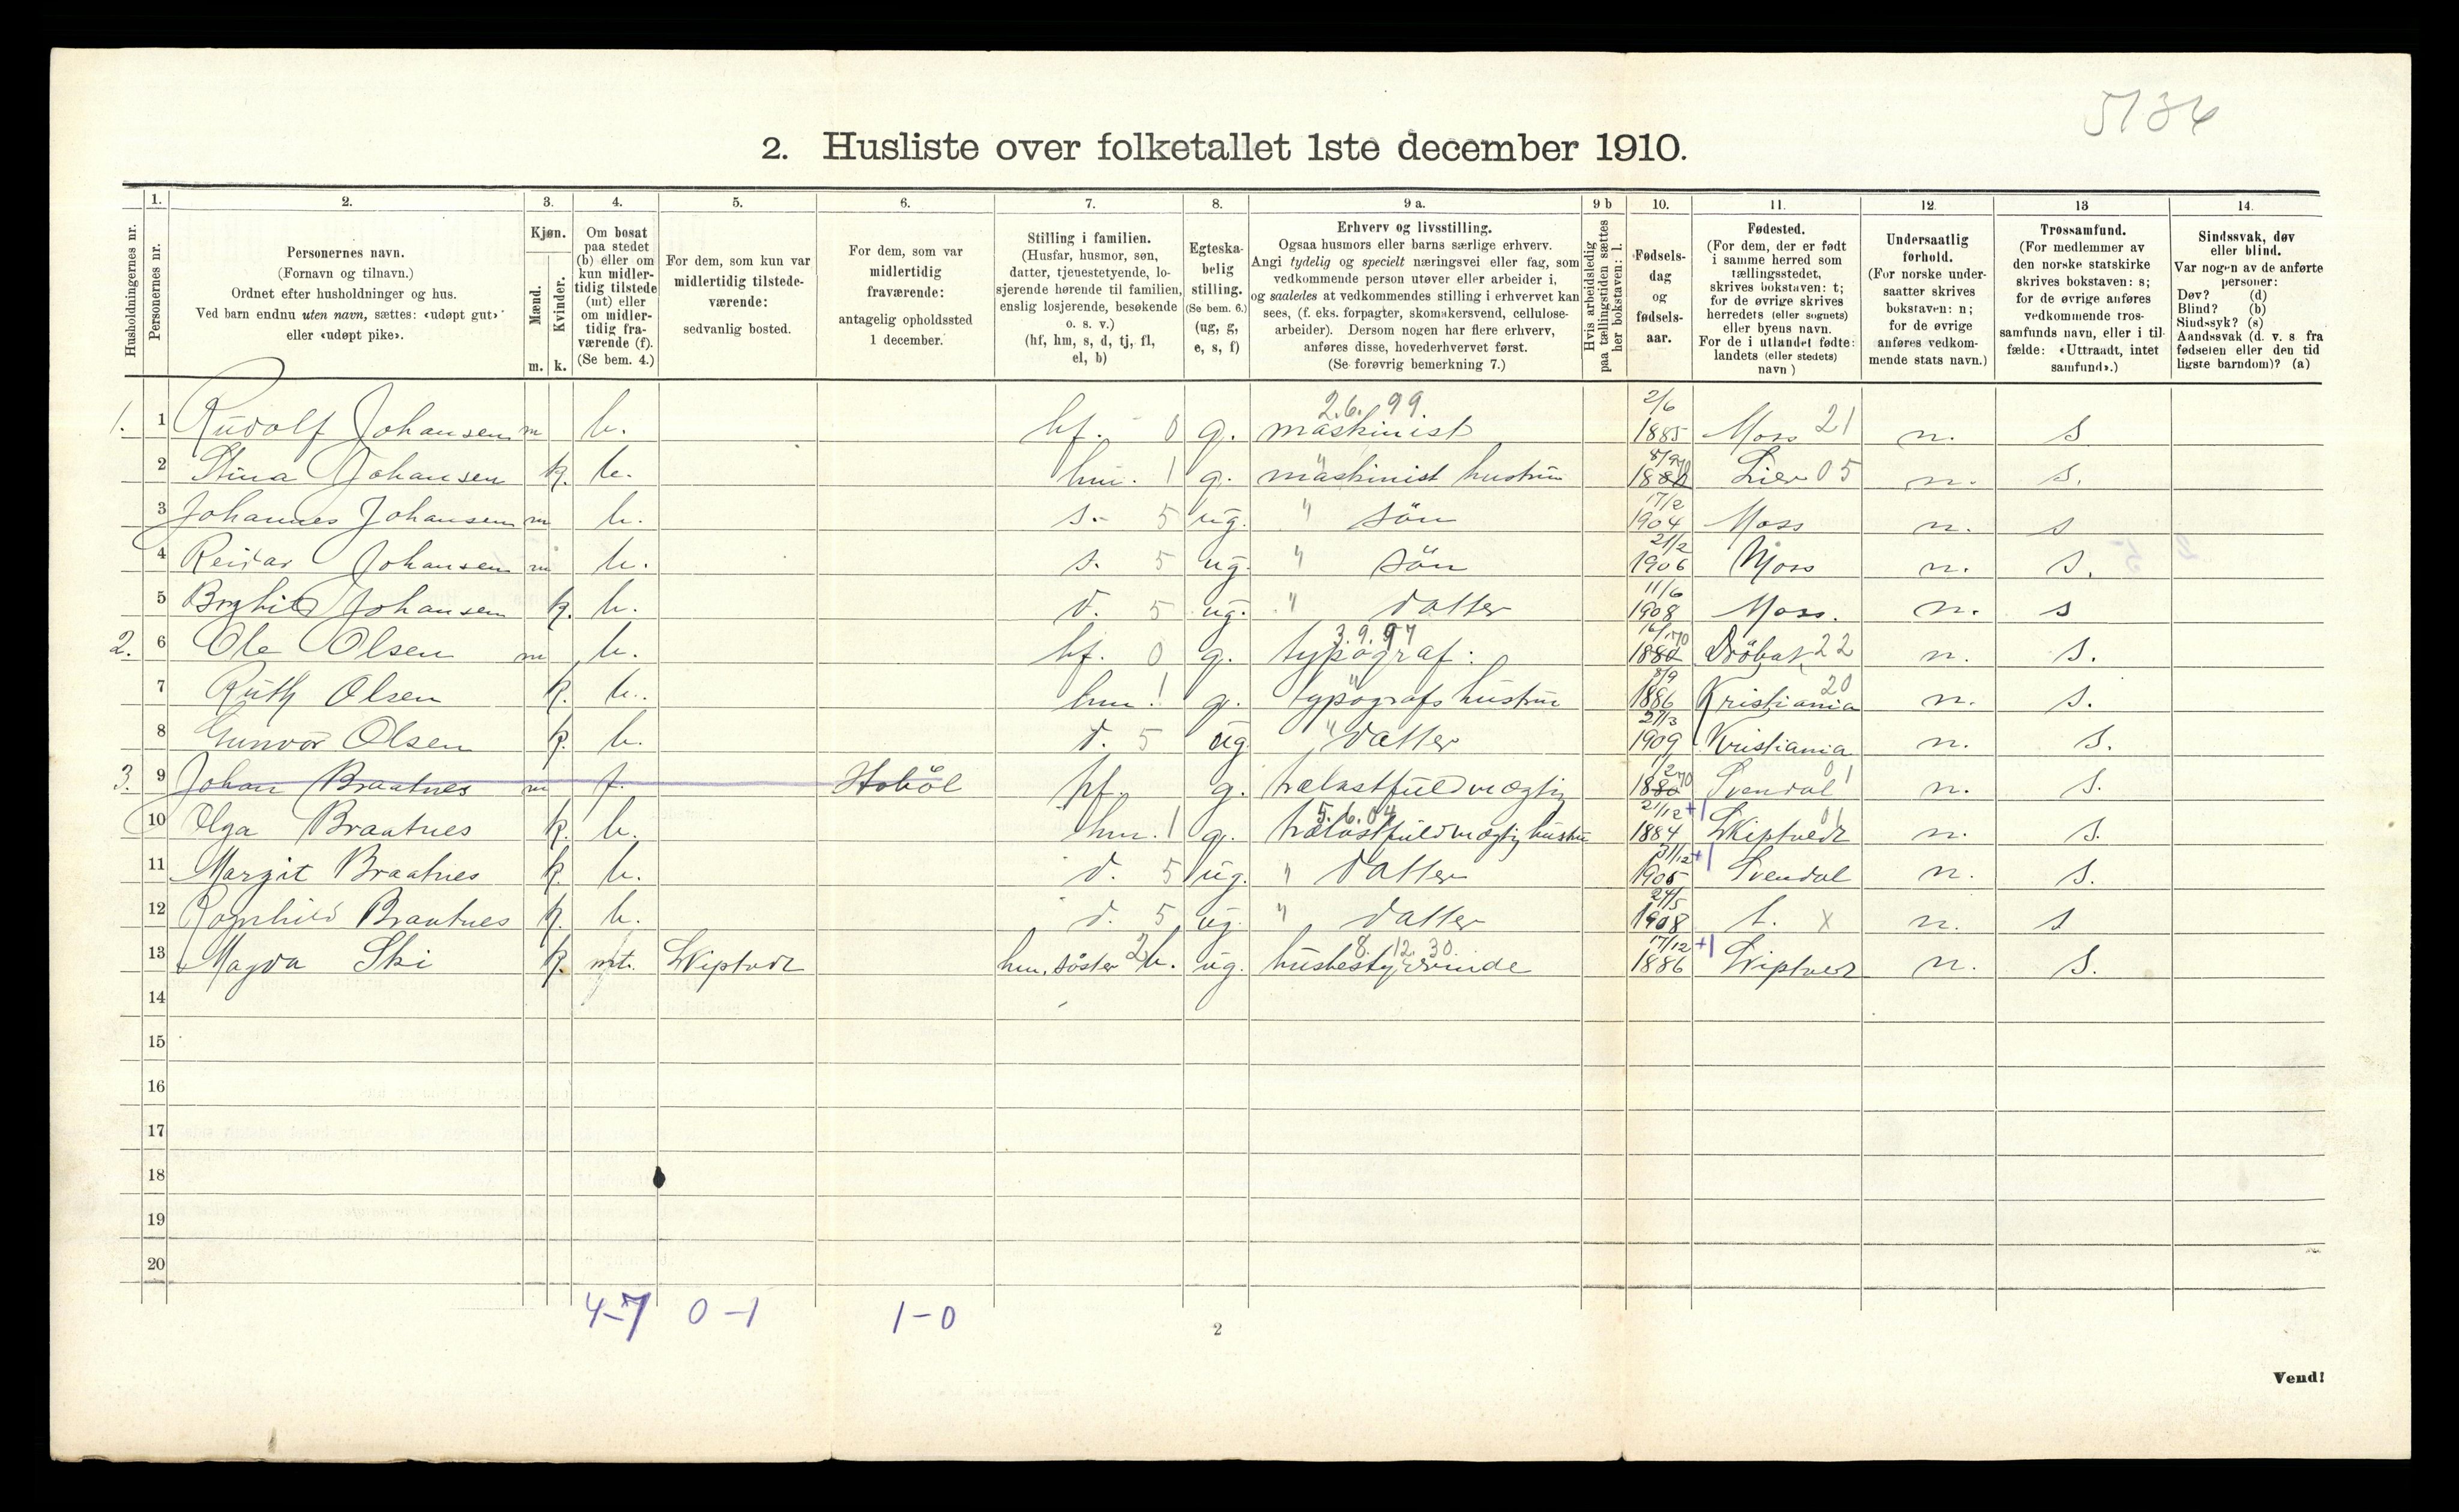 5136
2. Husliste over folketallet 1ste december 1910.
Husholdningernes nr.
1. Personernes nr.
2. Personernes navn.
(Fornavn og tilnavn.)
Ordnet efter husholdninger og hus.
Ved barn endnu uten navn, sættes: «udøpt gut»
eller «udøpt pike».
3. Kjøn.
Mænd. m.
Kvinder. k.
4. Om bosat
paa stedet
(b) eller om
kun midler-
tidig tilstede
(mt) eller
om midler-
tidig fra-
værende (f).
(Se bem. 4.)
5. For dem, som kun var
midlertidig tilstede-
værende:
sedvanlig bosted.
6. For dem, som var
midlertidig
fraværende:
antagelig opholdssted
1 december.
7. Stilling i familien.
(Husfar, husmor, søn,
datter, tjenestetyende, lo-
sjerende hørende til familien,
enslig losjerende, besøkende
o. s. v.)
(hf, hm, s, d, tj, fl,
el, b)
8. Egteska-
belig
stilling.
(Se bem. 6.)
(ug, g,
e, s, f)
9 a. Erhverv og livsstilling.
Ogsaa husmors eller barns særlige erhverv.
Angi tydelig og specielt næringsvei eller fag, som
vedkommende person utøver eller arbeider i,
og saaledes at vedkommendes stilling i erhvervet kan
sees, (f. eks. forpagter, skomakersvend, cellulose-
arbeider). Dersom nogen har flere erhverv,
anføres disse, hovederhvervet først.
(Se forøvrig bemerkning 7.)
9 b Hvis arbeidsledig
paa tællingstiden sættes
her bokstaven: l.
10. Fødsels-
dag
og
fødsels-
aar.
11. Fødested.
(For dem, der er født
i samme herred som
tællingsstedet,
skrives bokstaven: t;
for de øvrige skrives
herredets (eller sognets)
eller byens navn.
For de i utlandet fødte:
landets (eller stedets)
navn)
12. Undersaatlig
forhold.
(For norske under-
saatter skrives
bokstaven: n;
for de øvrige
anføres vedkom-
mende stats navn.)
13 Trossamfund.
(For medlemmer av
den norske statskirke
skrives bokstaven: s;
for de øvrige anføres
vedkommende tros-
samfunds navn, eller i til-
fælde: «Uttraadt, intet
samfund».)
14. Sindssvak, døv
eller blind.
Var nogen av de anførte
personer:
Døv? (d)
Blind? (b)
Sindssyk? (s)
Aandssvak (d. v. s. fra
fødselen eller den tid
ligste barndom)? (a)
1. 1 Rudolf Johansen m b. hf. 0 g. 2.6.99. maskinist 2/6 1885 Moss 21 n. s
2 Stina Johansen k. b. hm. 1 g. " maskinist hustru n. s. Lier 05
3 Johannes Johansen m b. s. 5 ug. " sön 17/2 1904 Moss n. s
4 Reidar Johansen m b. s. 5 ug. " sön 21/2 1906 Moss n. s.
5 Borghild Johansen k. b. d. 5 ug. " datter 11/6 1908 Moss. n. s
2. 6 Ole Olsen m b. hf. 0 g. 3.9.97 typograf: 1880 Dröbak 22 n. s.
7 Ruth Olsen k. b. hm. 1 g. " typografs hustru 8/9 1886 Kristiania 20 n. s.
8 Gunvor Olsen k. b. d. 5 ug " datter 27/3 1909 Kristiania n. s.
3. 9 Johan Braatnes m f. Hoböl hf. g. trælastfuldmægtig 1880 Svendal 01 n. s.
10 Olga Braatnes k. b. hm. 1 g. 5.6.04 trælastfuldmægtig hustru 21/12 +1 1884 Skiptvedt 01 n. s.
11 Margit Braatnes k. b. d. 5 ug. " datter 31/12 +1 1905 Svendal n. s.
12 Ragnhild Braatnes k. b. d. 5 ug. " datter 24/5 1908 t. x n. s
13 Magda Ski k. mt. Skiptvedt hm. söster 2 b. ug. 8.12.30. husbestyrerinde 17/12 +1 1886 Skiptvedt n. s.
14
15
16
17
18
19
20
4-7 0-1 1-0
2
Vend!